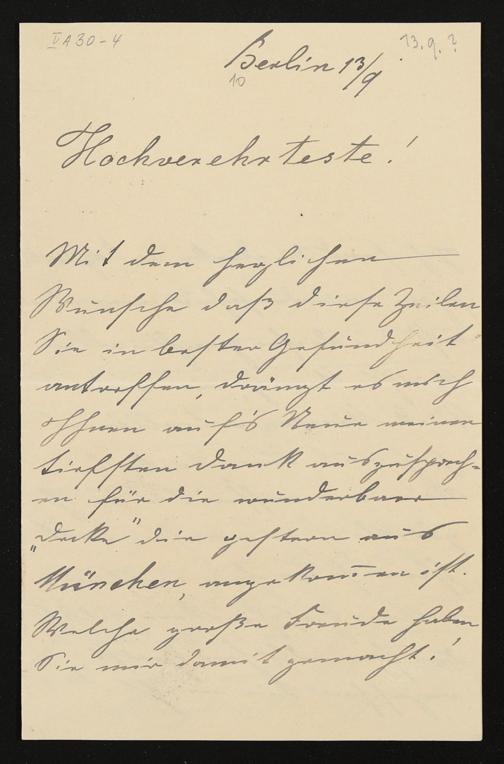 V A 30-4
13. 9. ?
Berlin 13/9
10
Hochverehrteste!
Mit dem herzlichen
Wunsche daß diese Zeilen
Sie in bester Gesundheit
antreffen, drängt es mich
Ihnen auf's Neue meinen
tiefsten Dank auszusprech-
en für die wunderbare
„Decke" die gestern aus
München, angekom̄en ist.
Welche große Freude haben
Sie mir damit gemacht!